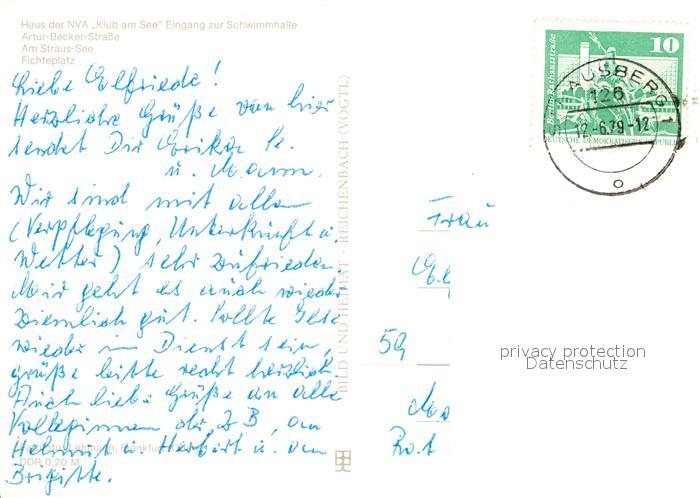 Haus der NVA „Klub am See" Eingang zur Schwimmhalle
Artur-Becker-Straße
Am Straus-See
Fichteplatz
Liebe Elfriede!
Herzliche Grüße von hier
sendet Dir Erika Se.
u. Mann.
Wir sind mit allem
(Verpflegung, Unterkunft u.
Wetter) sehr zufrieden.
Mir geht es auch wieder
ziemlich gut. Sollte Ilse
wieder im Dienst sein,
grüße bitte recht herzlich
Auch liebe Grüße an alle
Kolleginnen der ZB, an
Helmut u. Herbert u. an
Brigitte.
DDR 0,20 M
BILD UND HEIMAT · REICHENBACH (VOGTL)
10
Berlin-Rathausstraße
DEUTSCHE DEMOKRATISCHE REPUBLI
AUSBERG 1
126
12-6.79-12
o
Frau
59
Rat
privacy protection
Datenschutz